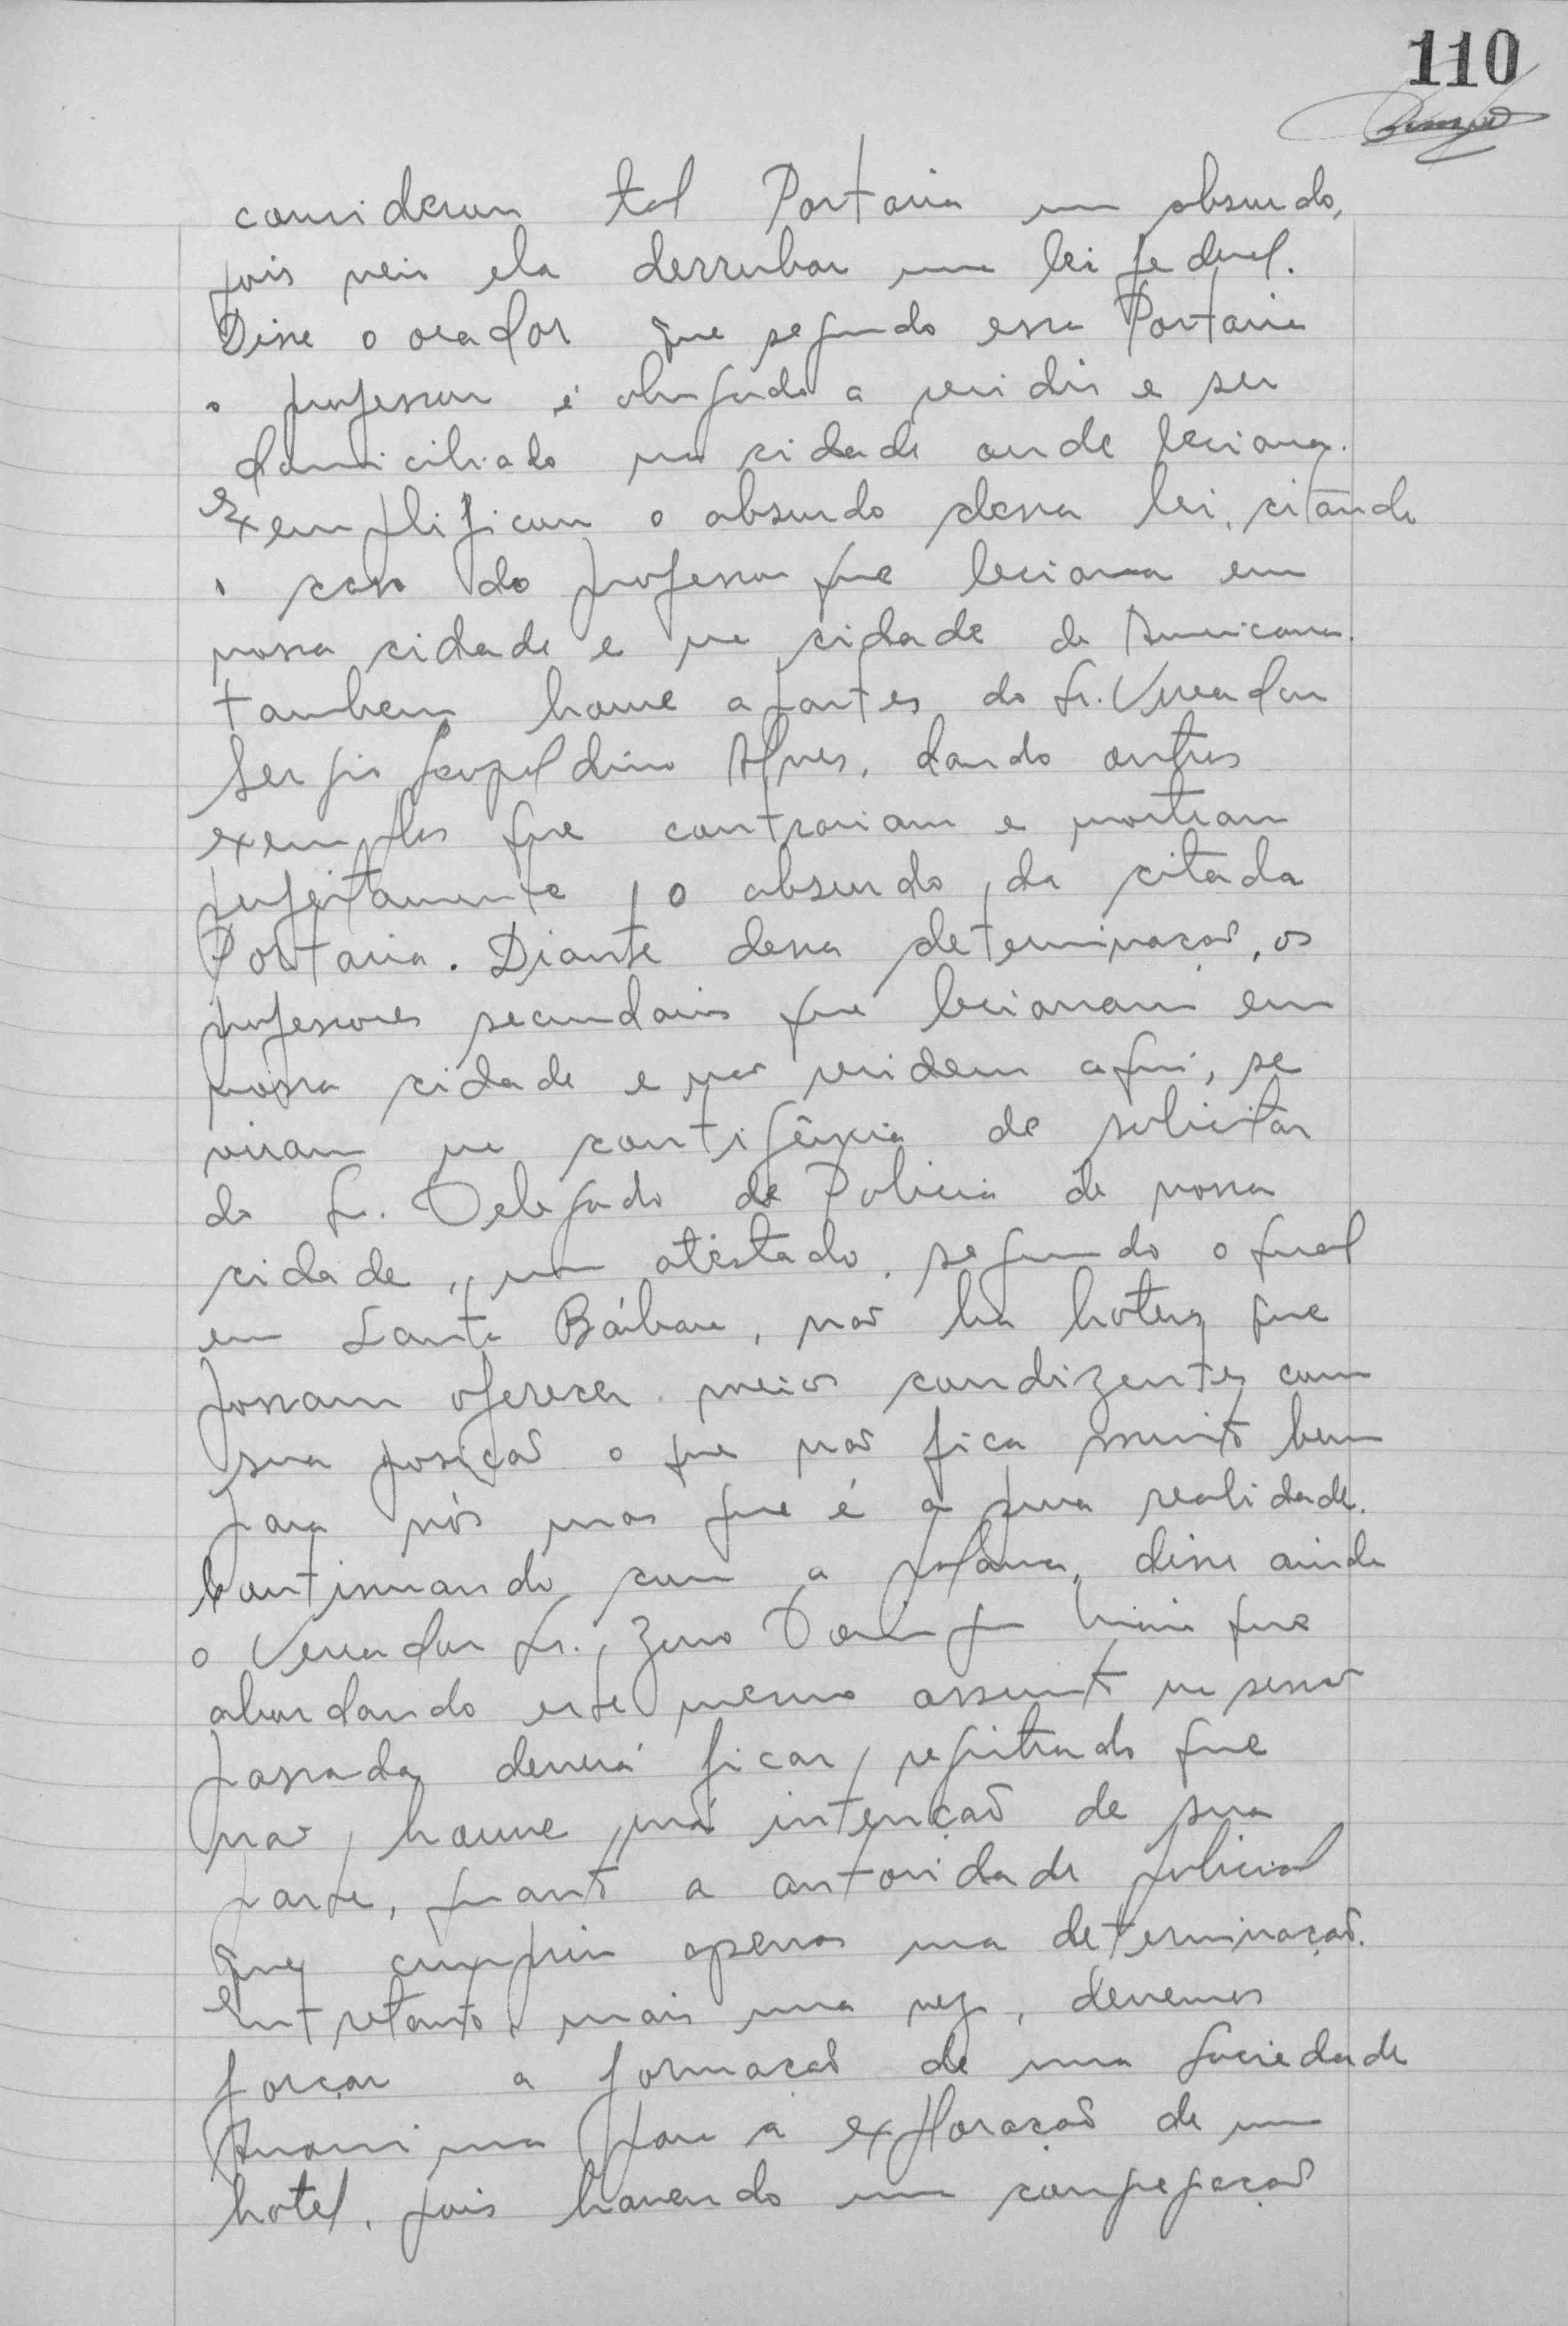 110
considerou tal Portaria um absurdo,
pois veio ela derrubar uma lei federal.
Disse o orador que segundo essa Portaria
o professor é obrigado a residir e ser
domiciliado na cidade onde leciona.
Exemplificou o absurdo dessa lei, citando
o caso do professor que leciona em
nossa cidade e na cidade de Americana.
tambem houve apartes do Sr. Vereador
Sergio Leopoldino Alves, dando outros
exemplos que contrariam e mostram
perfeitamente o absurdo da citada
Portaria. Diante dessa determinação, os
professores secundarios que lecionam em
nossa cidade e não residem aqui, se
viram na contigência de solicitar
do Sr. Delegado de Policia de nossa
cidade, um atestado, segundo o qual
em Santa Bárbara, não ha hoteis que
possam oferecer meios condizentes com
sua posição o que não fica muito bem
para nós mas que é a pura realidade.
Continuando com a palavra, disse ainda
o Vereador Sr. Zeno Maia que
abordando este mesmo assunto na sessão
passada deverá ficar registrado que
não houve má intenção de sua
parte, quanto a autoridade policial
que cumpriu apenas uma determinação.
Entretanto, mais uma vez, devemos
forçar a formação de uma Sociedade
Anonima para a exploração de um
hotel, pois havendo uma congregação